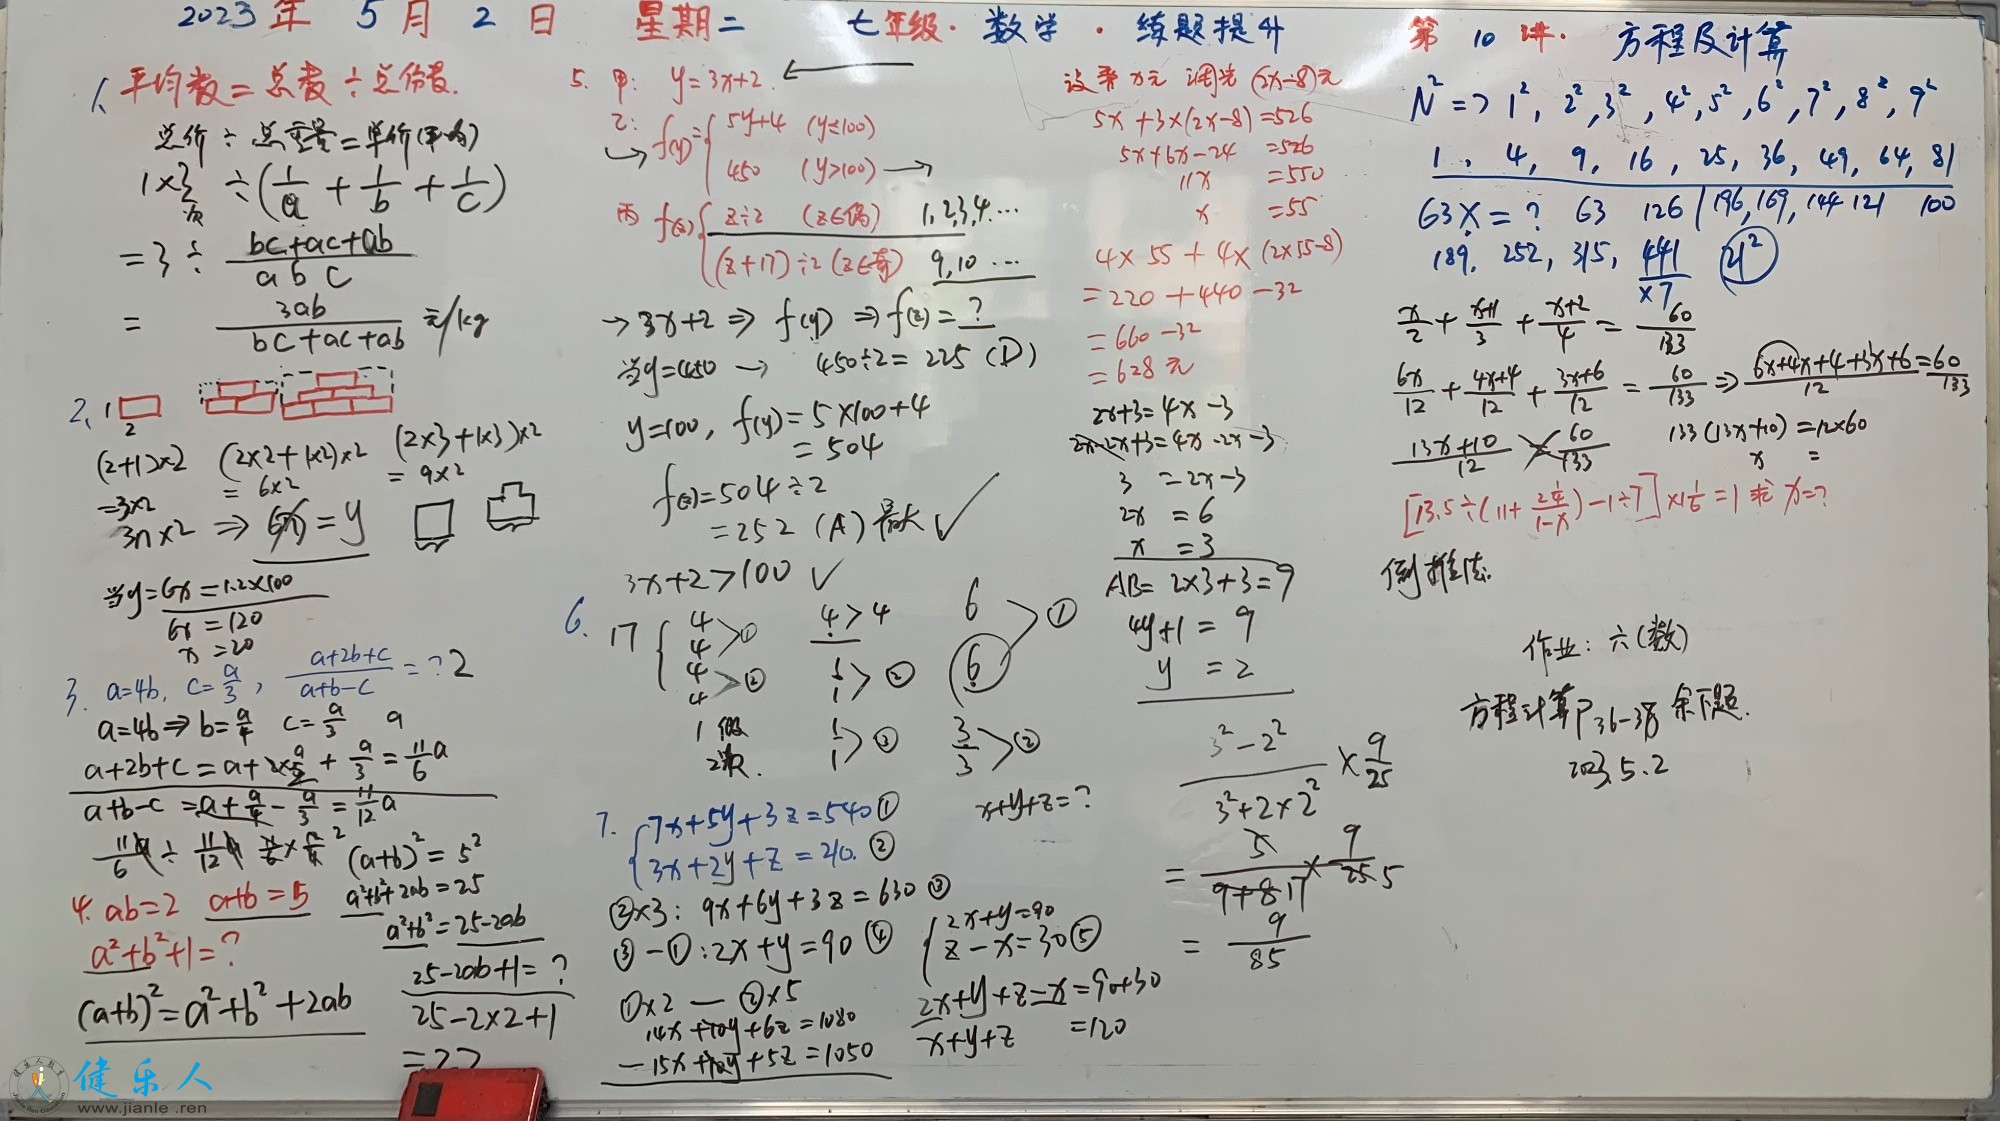 2023年 5月 2日 星期二 七年级·数学·练题提升 第10讲· 方程及计算
1、平均数=总数÷总份数.
总价÷总重量=单价(平均)
1×3次 ÷(1/a + 1/b + 1/c)
=3÷ (bc+ac+ab)/(abc)
= 3ab/(bc+ac+ab) 元/kg
2、1
2
(2+1)×2 (2×2+1×2)×2 (2×3+1×3)×2
=3×2 = 6×2 = 9×2
3n×2 ⇒ 6x=y
当y=6x=1.2×100
6x=120
x=20
3. a=4b, c=a/3, (a+2b+c)/(a+b-c)=? 2
a=4b⇒b=a/4 c=a/3 a
a+2b+c=a+2×a/4+a/3=11/6 a
a+b-c=a+a/4-a/3=11/12 a
11/6 a÷11/12 a
4. ab=2 a+b=5
a²+b²+1=?
(a+b)²=a²+b²+2ab
(a+b)²=5²
a²+b²+2ab=25
a²+b²=25-2ab
25-2ab+1=?
25-2×2+1
=22
5. 甲: y=3x+2.
乙: f(y)={5y+4 (y≤100)
450 (y>100)→
丙 f(z){z÷2 (z∈偶) 1,2,3,4...
(z+17)÷2 (z∈奇) 9,10...
→3x+2⇒f(y)⇒f(z)=?
当y=450→ 450÷2=225 (D)
y=100, f(y)=5×100+4
=504
f(z)=504÷2
=252 (A) 最大✓
3x+2>100 ✓
6. 17
4 4>4 6
4>① ①
4 1 6
4>② 1>②
1 假 1 3
2状. 1>③ 3>②
7. {7x+5y+3z=540①
3x+2y+z=210.②
x+y+z=?
②×3: 9x+6y+3z=630③
③-①:2x+y=90④
①×2 — ②×5
14x+10y+6z=1080
-15x+10y+5z=1050
{2x+y=90
z-x=30⑤
2x+y+z-x=90+30
x+y+z =120
(2x-8)元
5x+3×(2x-8)=526
5x+6x-24 =526
11x =550
x =55
4×55+4×(2×55-8)
=220+440-32
=660-32
=628元
2x+3=4x-3
2x-2x+3=4x-2x-3
3 =2x-3
2x =6
x =3
AB=2×3+3=9
4y+1=9
y =2
(3²-2²)/(3²+2×2²)×9/25
= 5/(9+8 17)×9/25 5
= 9/85
N²=>1²,2²,3²,4²,5²,6²,7²,8²,9²
1,4,9,16,25,36,49,64,81
63x=? 63 126 196,169,144 121 100
189. 252, 315, 441 21²
×7
x/2+(x+1)/3+(x+2)/4=60/133
6x/12+(4x+4)/12+(3x+6)/12=60/133⇒(6x+4x+4+3x+6)/12=60/133
(13x+10)/12 60/133 133(13x+10)=12×60
x =
[13.5÷(11+ 2¼/(1-x))-1÷7]×1⅙=1求x=?
倒推法.
作业: 六(数)
方程计算P36-38余下题.
2023.5.2
健乐人
www.jianle.ren